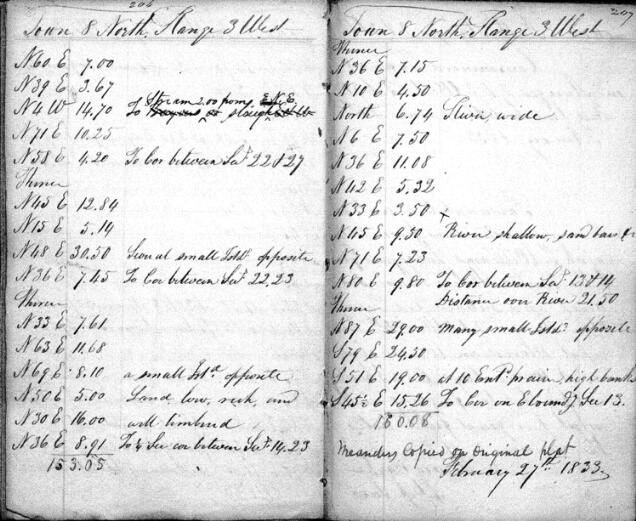 206
Town 8 North, Range 3 West
N60 E 7.00
N39 E 3.67
N4 W 14.70 of Stream 2.00 from
N71 E 10.25
N58 E 4.20 To Cor between Sec. 22 & 27
Thence
N45 E 12.84
N15 E 5.14
N48 E 30.50 Several small Isld. opposite
N36 E 7.45 To Cor between Sec. 22, 23
Thence
N33 E 7.61
N63 E 11.68
N69 E 8.10 a small Isld. opposite
N50 E 5.00 Land low, rich, and
N30 E 16.00 well timbered
N36 E 8.91 To ¼ Sec cor between Sec. 14, 23
153.05
207
Town 8 North, Range 3 West
Thence
N36 E 7.15
N10 E 4.50
North 6.74 River wide
N6 E 7.50
N36 E 11.08
N42 E 5.32
N33 E 3.50
N45 E 9.50 River shallow, sand bars &c
N71 E 7.23
N80 E 9.80 To Cor between Sec. 13 & 14
Thence Distance over River 21.50
N87 E 29.00 Many small Isld. opposite
S79 E 24.30
S51 E 19.00 at 10 high bank
S45½ E 15.26 To Cor on E bound. Sec 13.
160.08
Meanders Copied on Original plat
February 27th. 1833.